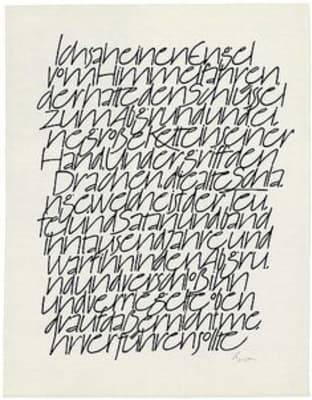 Ich sah einen Engel
vom Himmel fahren
der hatte den Schlüssel
zum Abgrund und ei
ne große Kette in seiner
Hand Und er griff den
Drachen, die alte Schla
nge welche ist der Teu
fel und Satan und band
ihn tausend Jahre und
warf ihn in den Abgru
nd und verschloß ihn
und verriegelte oben
drauf daß er nicht me
hr verführen sollte